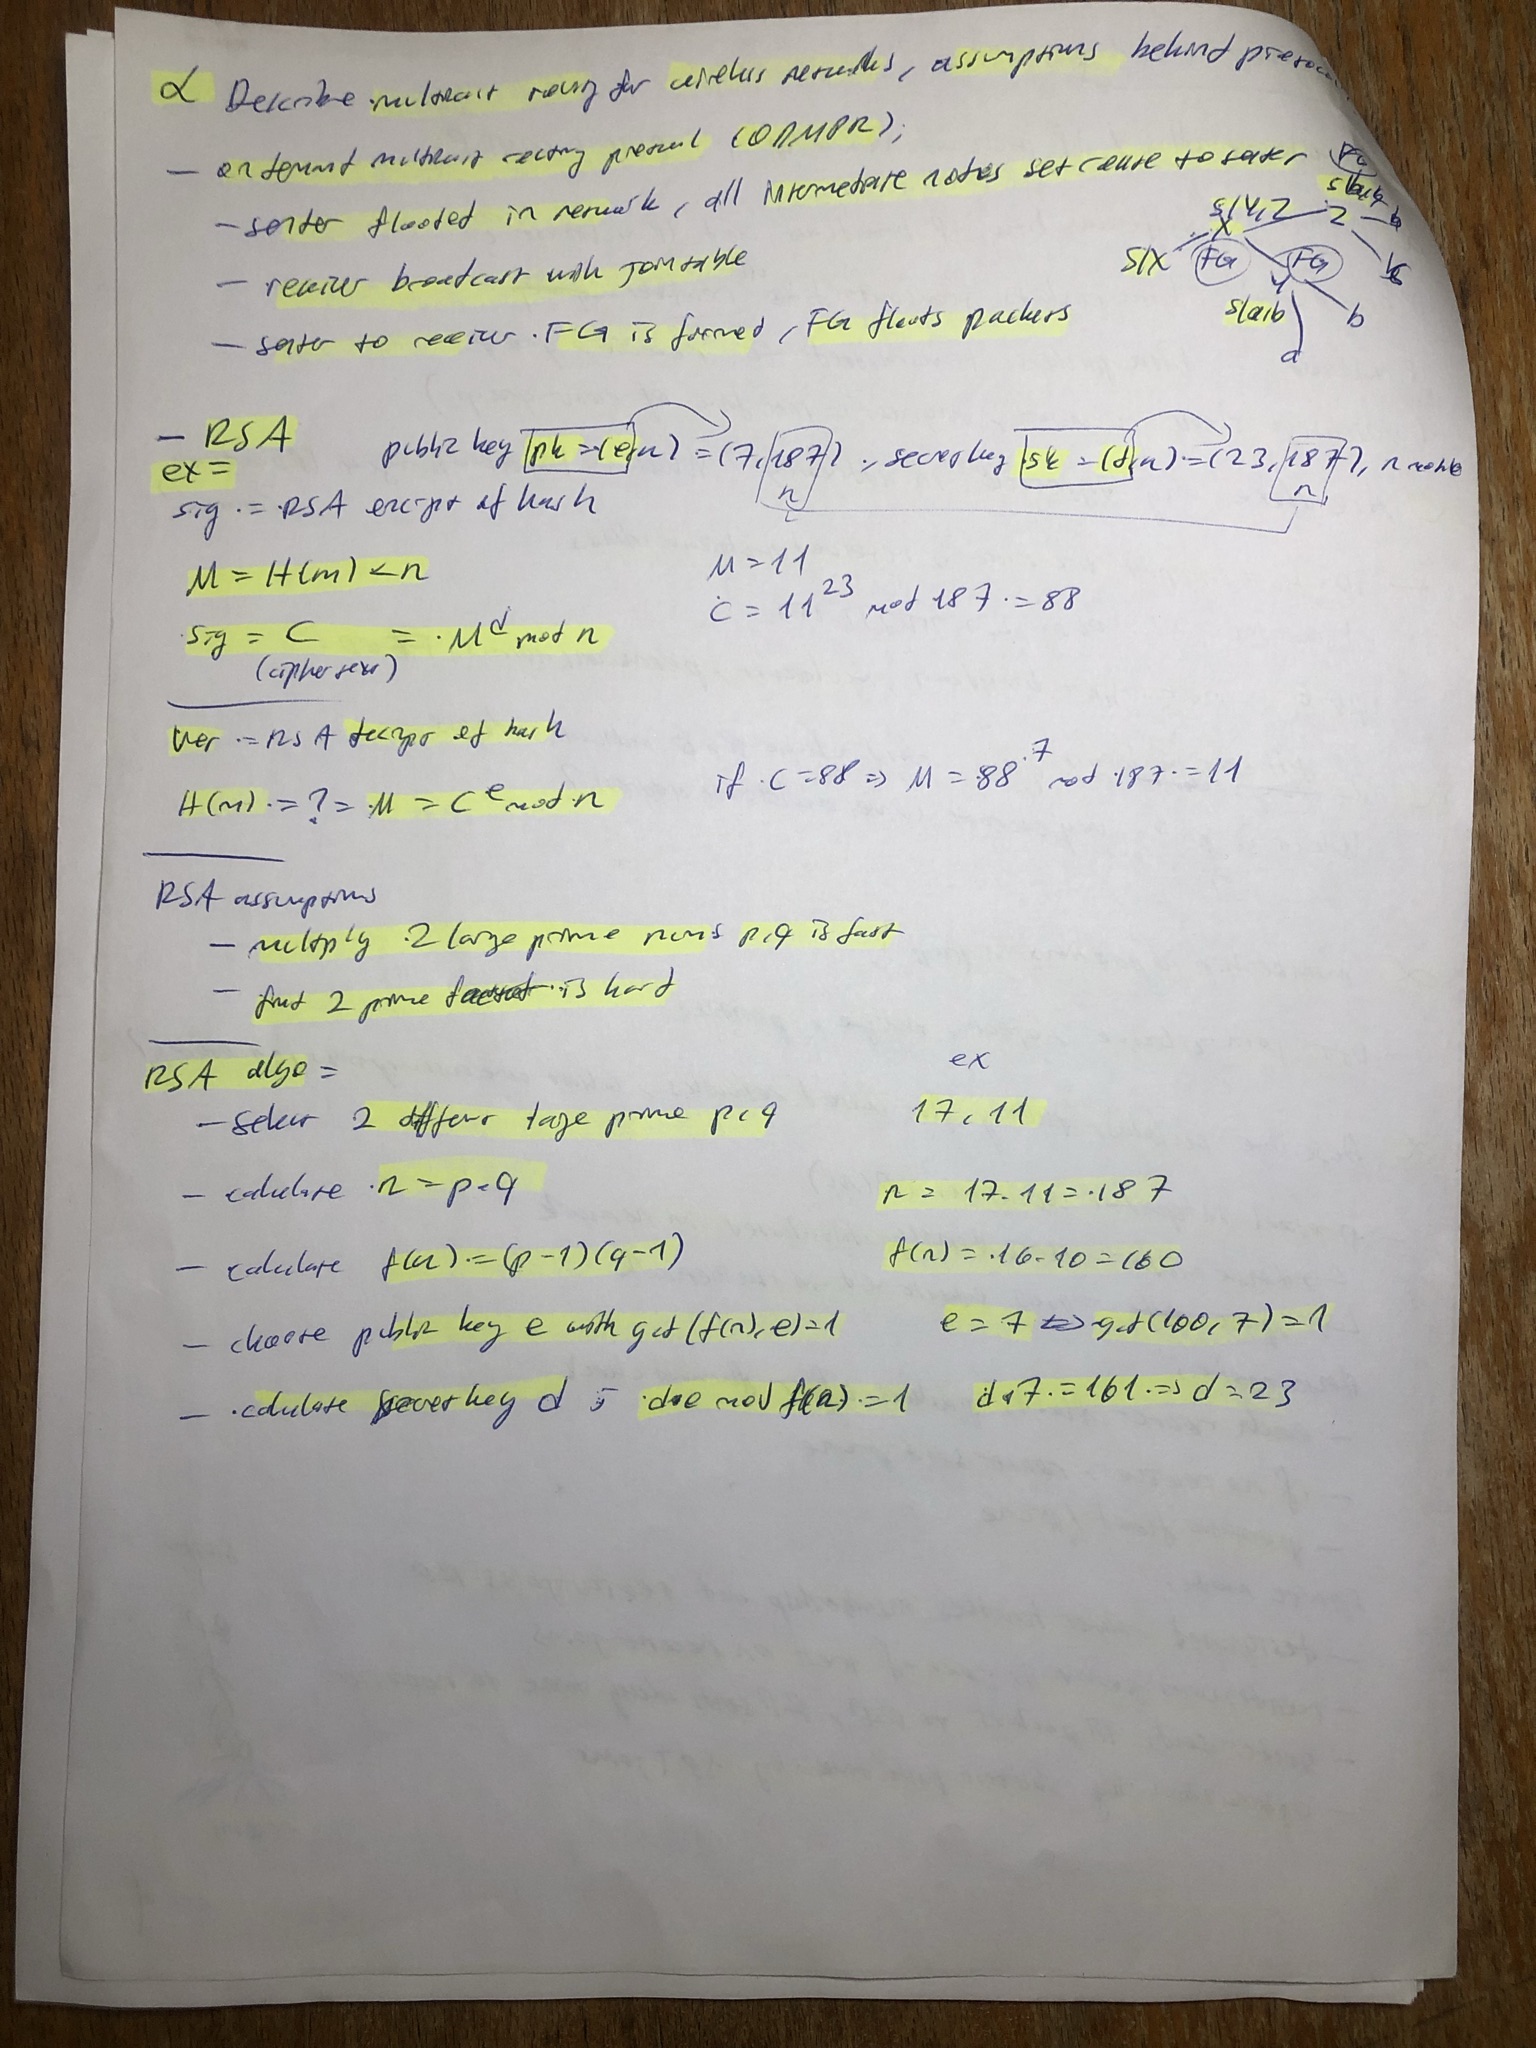 α Describe multicast routing for wireless networks, assumptions behind protocol
- on demand multicast routing protocol (ODMPR);
- sender flooded in network, all intermediate nodes set route to sender
- reciver broadcast with Jointable
- sender to reciver. FG is formed, FG floods packets
FG
s|a,b
s|Y,Z
X
Z
b
S|X
FG
FG
Y
s|a,b
b
a
- RSA
ex=
public key pk = (e,n) = (7,187), secret key sk = (d,n) = (23,187), n
n
n
sig = RSA encrypt of hash
M = H(m) < n
M = 11
C = 11^23 mod 187 = 88
sig = C = M^d mod n
(ciphertext)
Ver = RSA decrypt of hash
H(m) = ? = M = C^e mod n
if C = 88 => M = 88^7 mod 187 = 11
RSA assumptions
- multiply 2 large prime nums p,q is fast
- find 2 prime is hard
RSA algo =
ex
- select 2 different large prime p,q
17, 11
- calculate n = p.q
n = 17.11 = 187
- calculate f(n) = (p-1)(q-1)
f(n) = 16.10 = 160
- choose public key e with gcd(f(n),e)=1
e = 7 <=> gcd(160,7)=1
- calculate secret key d ; d.e mod f(n) = 1
d.7 = 161 => d = 23